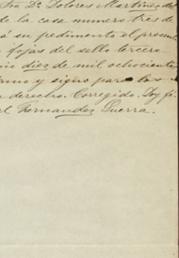 Sra Da Dolores Martinez, de
de la casa numero tres de
á su pedimento el presen
fojas del sello tercero
diez de mil ochocient
signo para los
derecho. Corregido. Doy fé
el Fernandez Guerra.